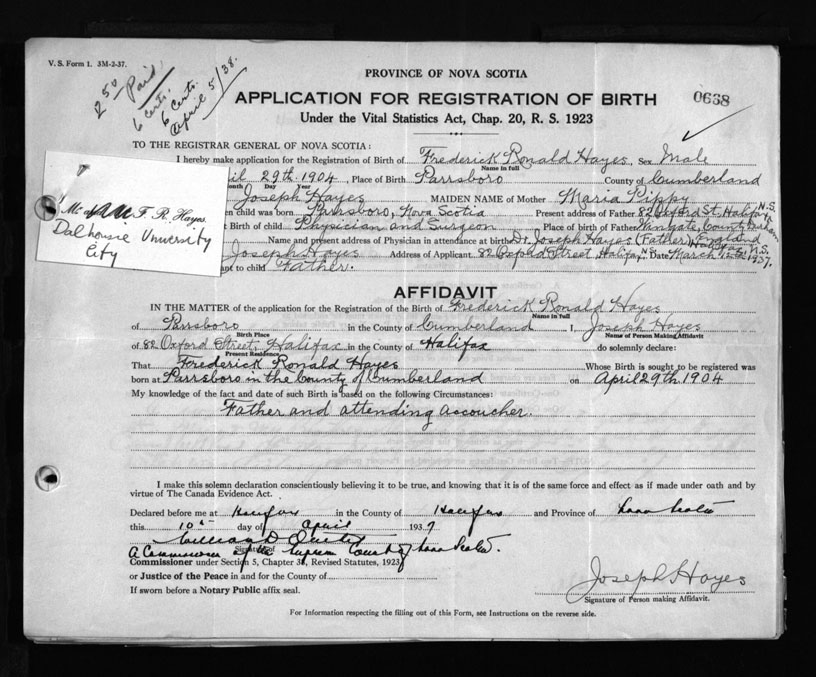 V. S. Form 1. 3M-2-37.
2 50 Paid.
6 certs.
6 Certs.
April 5/38.
PROVINCE OF NOVA SCOTIA
APPLICATION FOR REGISTRATION OF BIRTH
0668
Under the Vital Statistics Act, Chap. 20, R. S. 1923
TO THE REGISTRAR GENERAL OF NOVA SCOTIA:
I hereby make application for the Registration of Birth of Frederick Ronald Hayes, Sex Male
Name in full
29th 1904, Place of Birth Parrsboro County of Cumberland
Day Year
Joseph Hayes MAIDEN NAME of Mother Maria Pippy
child was born Parrsboro, Nova Scotia Present address of Father 82 Oxford St. Halifax N.S.
Birth of child Physician and Surgeon Place of birth of Father County Durham
Name and present address of Physician in attendance at birth Dr. Joseph Hayes (Father) England
Joseph Hayes Address of Applicant 82 Oxford Street, Halifax, N.S. Date March 1937.
to child Father.
F. R. Hayes
Dalhousie University
City
AFFIDAVIT
IN THE MATTER of the application for the Registration of Birth of Frederick Ronald Hayes
Name in full
of Parrsboro in the County of Cumberland I, Joseph Hayes
Birth Place Name of Person Making Affidavit
of 82 Oxford Street, Halifax in the County of Halifax do solemnly declare:
Present Residence
That Frederick Ronald Hayes Whose Birth is sought to be registered was
born at Parrsboro in the County of Cumberland on April 29th 1904
My knowledge of the fact and date of such Birth is based on the following Circumstances:
Father and attending accoucher.
I make this solemn declaration conscientiously believing it to be true, and knowing that it is of the same force and effect as if made under oath and by
virtue of The Canada Evidence Act.
Declared before me at Halifax in the County of Halifax and Province of Nova Scotia
this 10th day of April 1937
William D
A Commissioner of the Supreme Court of Nova Scotia.
Signature of
Commissioner under Section 5, Chapter 38, Revised Statutes, 1923
or Justice of the Peace in and for the County of
Joseph Hayes
If sworn before a Notary Public affix seal.
Signature of Person making Affidavit.
For Information respecting the filling out of this Form, see Instructions on the reverse side.